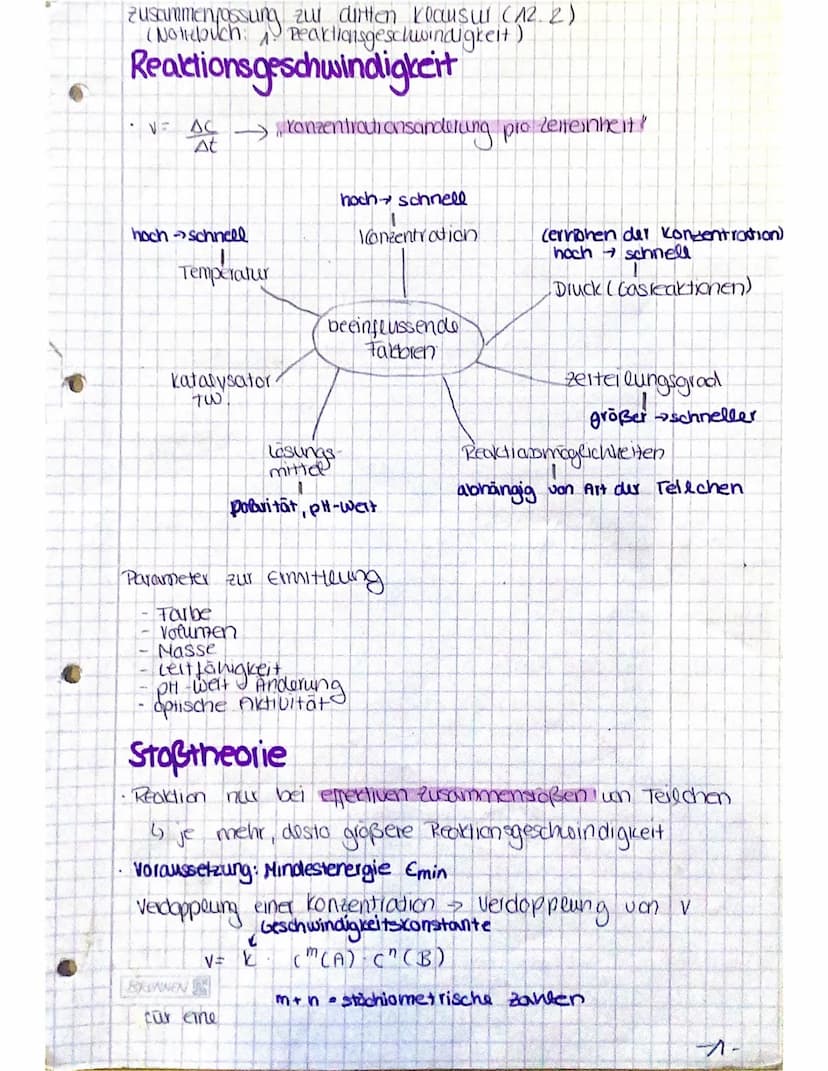 Zusammenfassung zur dritten Klausur (12.2)
(Notebuch: 1. Reaktionsgeschwindigkeit)
Reaktionsgeschwindigkeit
· v = ΔC/Δt → "Konzentrationsänderung pro Zeiteinheit"
hoch → schnell
Konzentration
hoch → schnell
Temperatur
(erhöhen der Konzentration)
hoch → schnell
Druck (Gasreaktionen)
beeinflussende
Faktoren
Katalysator
TW.
Zerteilungsgrad
größer → schneller
Lösungs-
mittel
Polarität, pH-Wert
Reaktionsmöglichkeiten
abhängig von Art der Teilchen
Parameter zur Ermittlung
- Farbe
- Volumen
- Masse
- Leitfähigkeit
- pH-Wert Änderung
- optische Aktivität
Stoßtheorie
· Reaktion nur bei effektiven Zusammenstößen von Teilchen
↳ je mehr, desto größere Reaktionsgeschwindigkeit
· Voraussetzung: Mindestenergie Emin
Verdopplung einer Konzentration → Verdopplung von v
Geschwindigkeitskonstante
v = k · c^m(A) · c^n(B)
BRUNNEN
m + n = stöchiometrische Zahlen
für eine
-1-